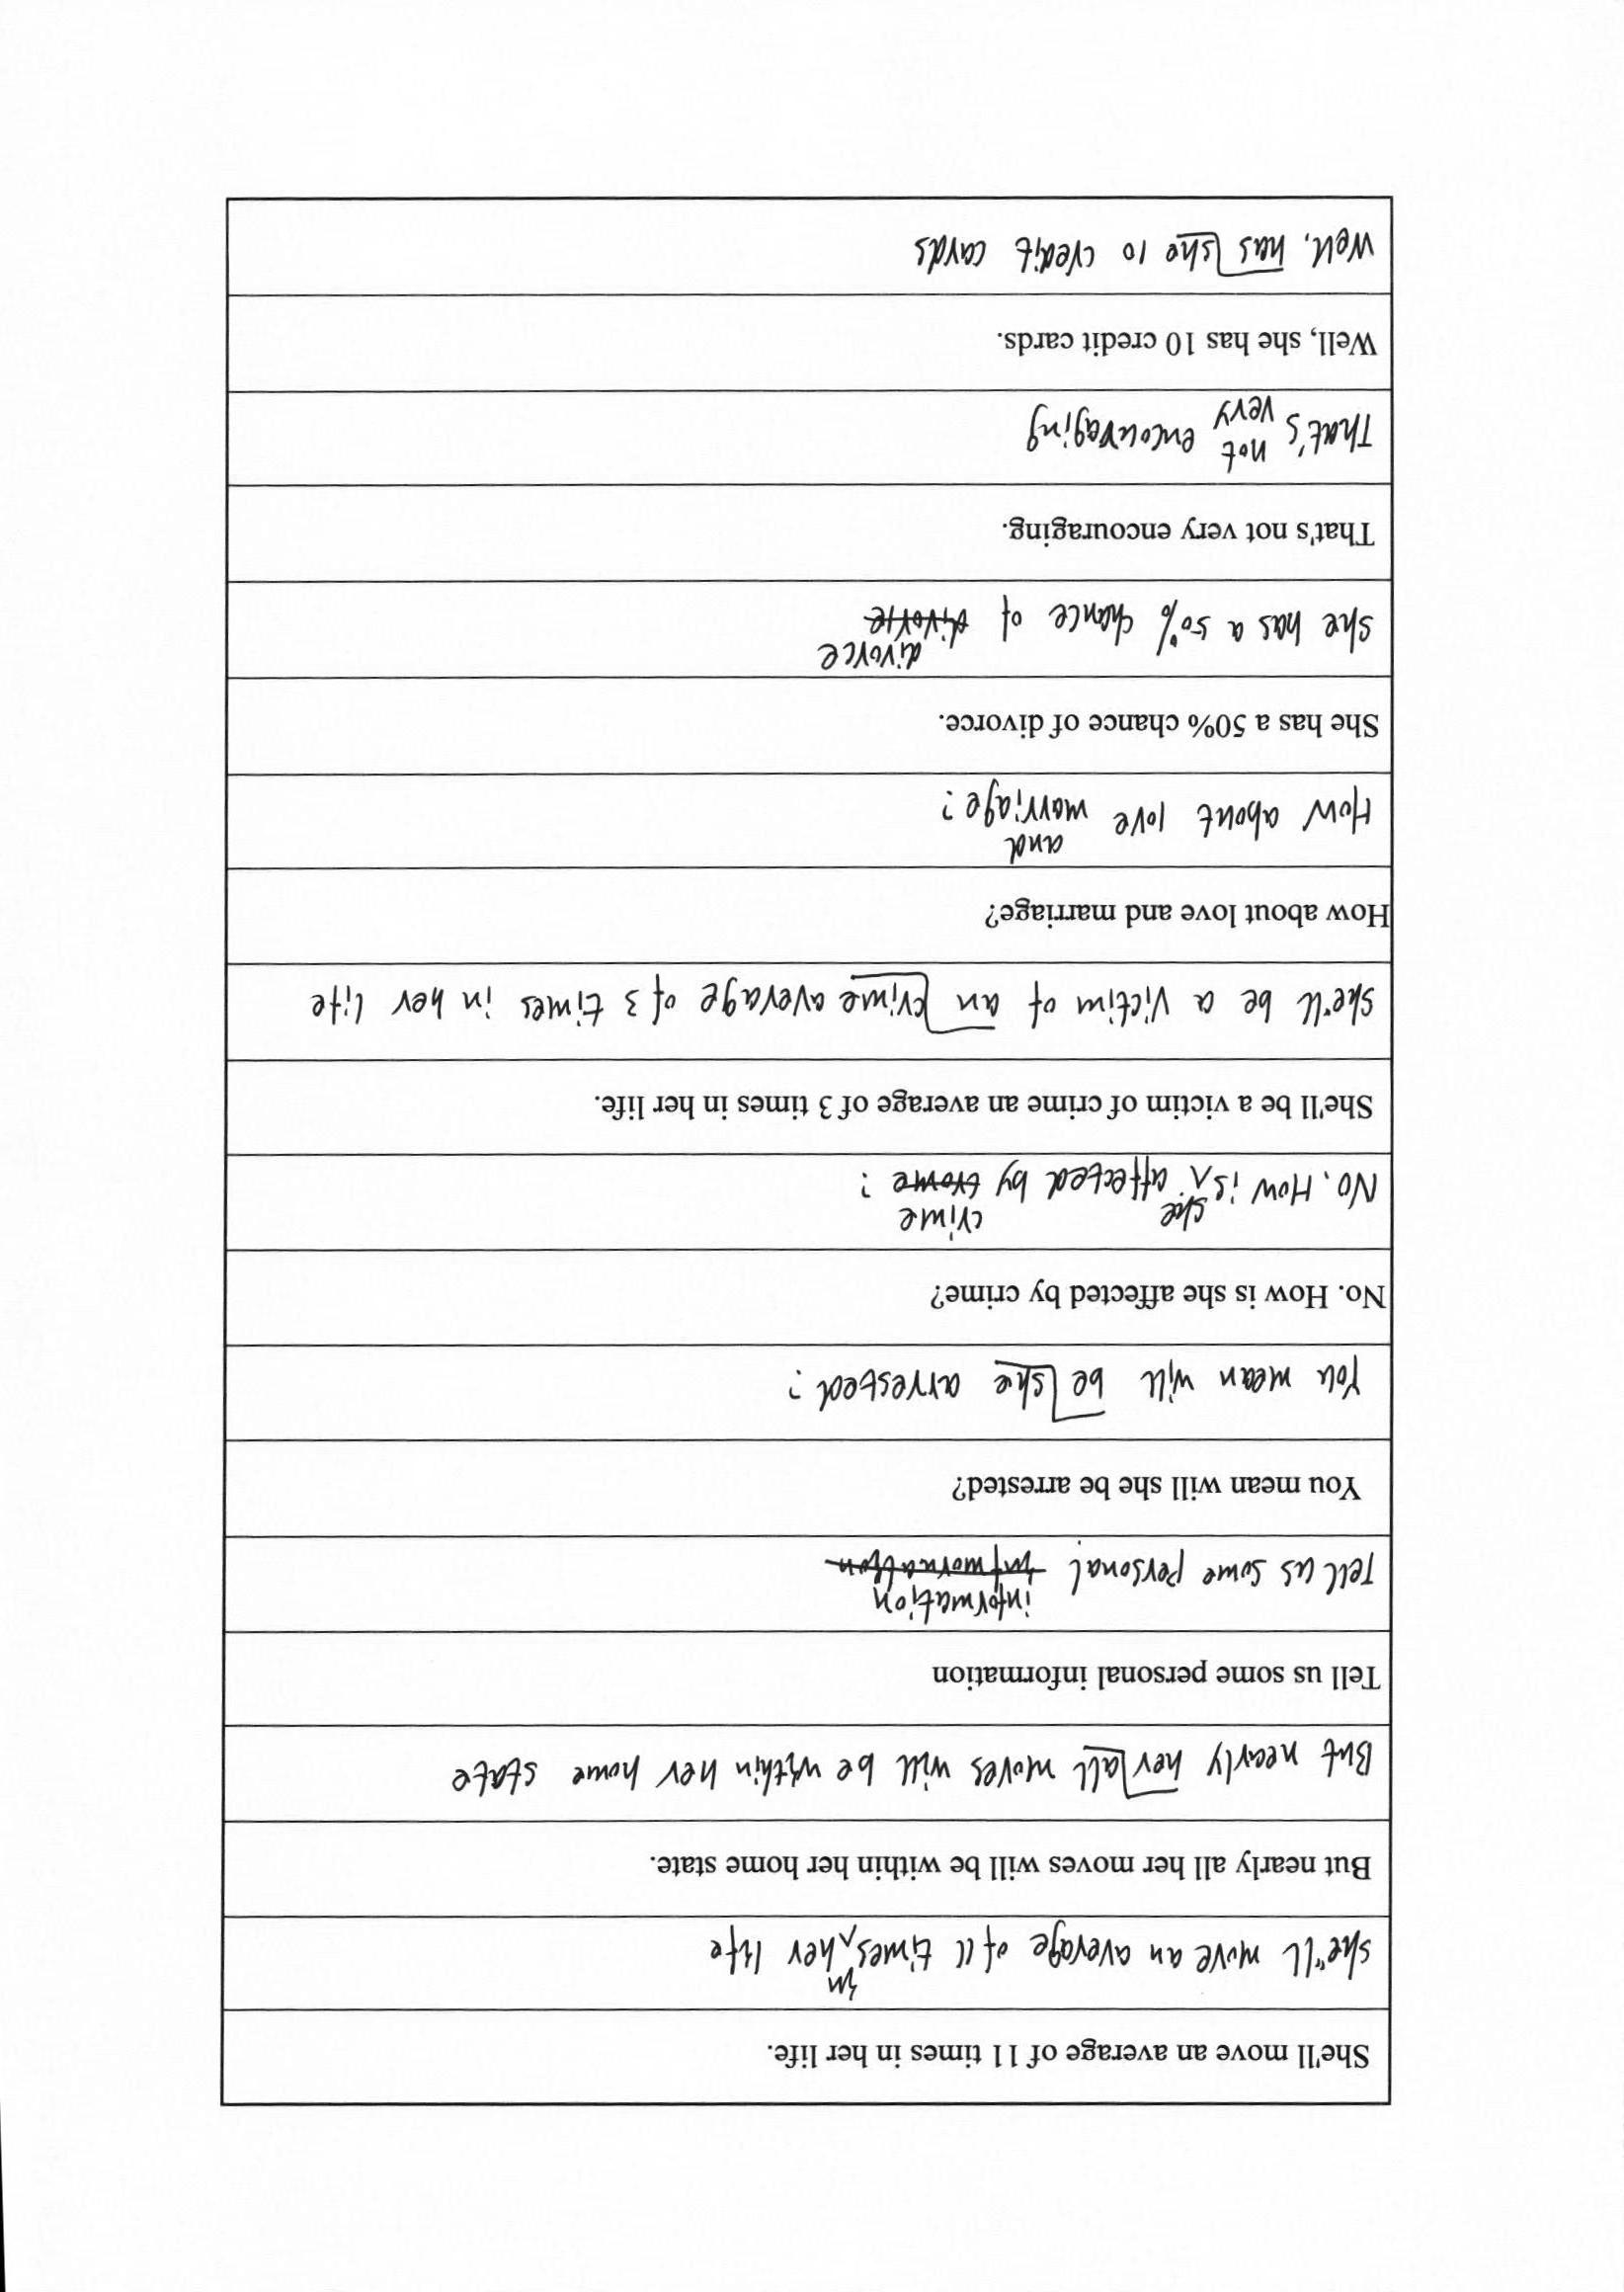 She'll move an average of 11 times in her life.
she'll move an average of 11 times in her life
But nearly all her moves will be within her home state.
But nearly all her moves will be within her home state
Tell us some personal information
Tell us some personal information
You mean will she be arrested?
You mean will she be arrested?
No. How is she affected by crime?
No. How is she affected by crime?
She'll be a victim of crime an average of 3 times in her life.
she'll be a victim of crime an average of 3 times in her life
How about love and marriage?
How about love and marriage?
She has a 50% chance of divorce.
she has a 50% chance of divorce
That's not very encouraging.
That's not very encouraging
Well, she has 10 credit cards.
Well, she has 10 credit cards